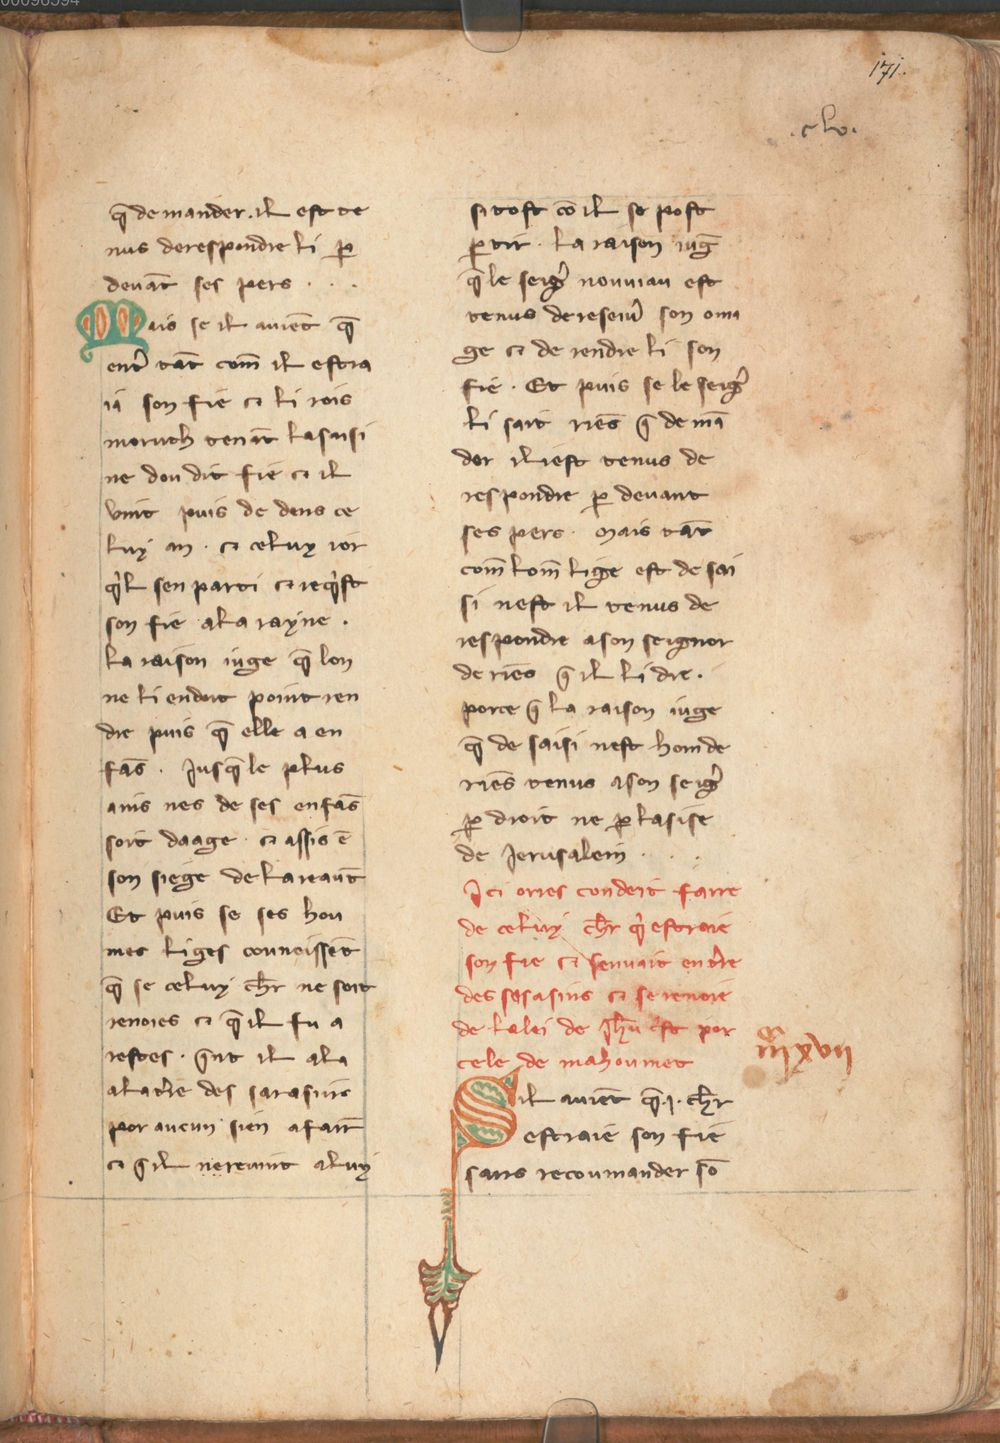 171.
.clv.
q̄ demander. il est te
nus derespondre li ꝑ
deuāt ses pers . . .
Mais se il auiēt q̄
entr̄ tāt com̄ il estra
ia son fie ⁊ li rois
moruth tenāt lasaisi
ne dou dit fie ⁊ il
vint puis de dens ce
luy an . ⁊ celuy ior
qͥl sen parti ⁊ reqͥst
son fie ala rayne .
La raison iuge q̄ lon
ne li endoit point ren
dre puis q̄ elle a en
fās . Jusq̄ le plus
ains nes de ses enfās
soit daage . ⁊ assis ē
son siege de lareaut̄
Et puis se ses hou
mes liges connoissēt
q̄ se celuy ch̄r ne soit
renoies ⁊ q̄ il fu a
restes . q̄nt il ala
alat̄re des sarasins
por aucun sien afair̄
⁊ q̄ il nereuint aluy
sitost cō il se post
ꝑtir . La raison iuḡ
q̄ le seigr̄ nouuiau est
tenus dereseiur̄ son oma
ge ⁊ de rendre li son
fie . Et puis se le seigr̄
li sait riēs q̄ demā
der il iest tenus de
respondre ꝑ deuant
ses pers . Mais tāt
com̄ lom̄ lige est desai
si nest il tenus de
respondre ason seignor
de riēs q̄ il li die .
porce q̄ la raison iuge
q̄ desaisi nest hom de
riēs tenus ason seigr̄
ꝑ droit ne ꝑ lasise
de Jerusalem . . .
Ici ories condeit faire
de celuy ch̄r qͥ estraie
son fie ⁊ senuait entr̄e
des sasasins ⁊ se renoie
de lalei de ih̄u cͥst por
cele de mahoumet
m̄ xvii
Sil auiēt q̄ .i. ch̄r
estraie son fie
sans recoumander sō